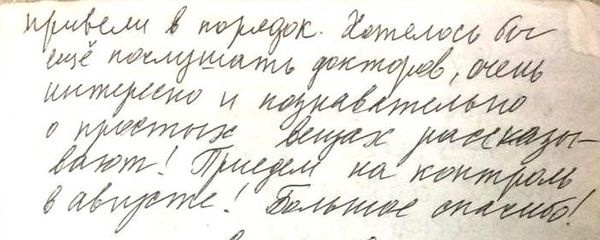 привели в порядок. Хотелось бы
ещё послушать докторов, очень
интересно и познавательно
о простых вещах рассказы-
вают! Приедем на контроль
в августе! Большое спасибо!